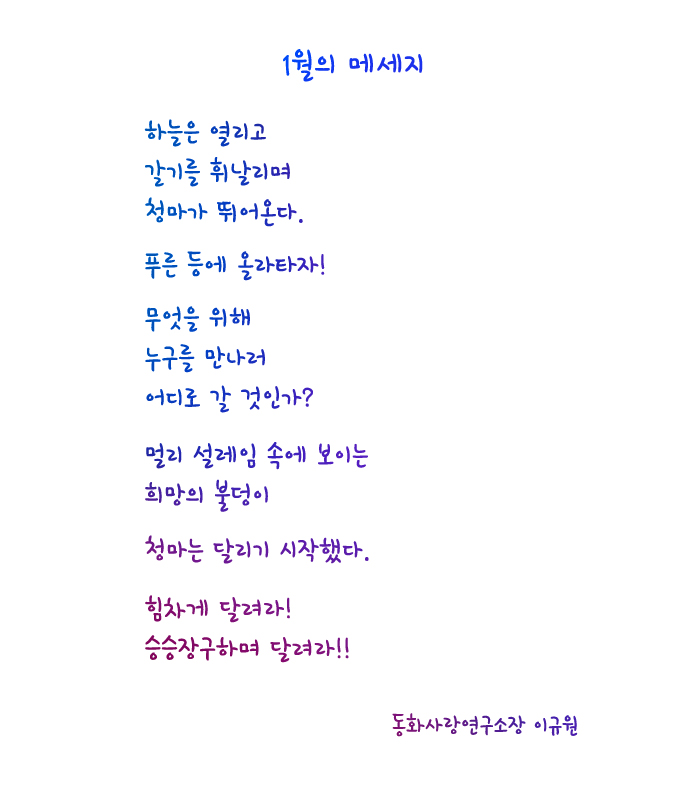 1월의 메세지
하늘은 열리고
갈기를 휘날리며
청마가 뛰어온다.
푸른 등에 올라타자!
무엇을 위해
누구를 만나러
어디로 갈 것인가?
멀리 설레임 속에 보이는
희망의 불덩이
청마는 달리기 시작했다.
힘차게 달려라!
승승장구하며 달려라!!
동화사랑연구소장 이규원